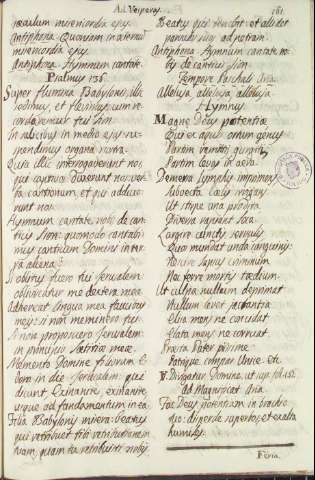 Ad Vesperas.
181
sæculum misericordia ejus.
Antiphona Quoniam in æternum
misericordia ejus.
Antiphona Hymnum cantate.
Psalmus 136.
Super flumina Babylonis, illic
sedimus, et flevimus, cum re-
cordaremur tui Sion.
In salicibus in medio ejus sus-
pendimus organa nostra.
Quia illic interrogaverunt nos,
qui captivos duxerunt nos, ver-
ba cantionum, et qui abduxe-
runt nos.
Hymnum cantate nobis de can-
ticis Sion: quomodo cantabi-
mus canticum Domini in ter-
ra aliena?
Si oblitus fuero tui Jerusalem
oblivioni detur dextera mea.
Adhereat lingua mea faucibus
meis: si non meminero tui.
Si non proposuero Jerusalem:
in principio lætitiæ meæ.
Memento Domine filiorum E-
dom in die Jerusalem: qui
dicunt Exinanite, exinanite,
usque ad fundamentum in ea.
Filia Babylonis misera: beatus
qui retribuet tibi retributionem
tuam, quam retribuisti nobis.
Beatus qui tenebit: et allidet
parvulos tuos ad petram.
Antiphona Hymnum cantate no-
bis de canticis Sion.
Tempore Paschali Ana.
Alleluja, alleluja, alleluja.
Hymnus
Magne Deus potentiæ
Qui ex aquis ortum genus
Partim remittis gurgiti,
Partim levas in aera.
Demersa lymphis imprimens,
Subvecta cælis
Ut stirpe una prodita
Diversa rapiant loca.
Largire cunctis servulis
Quos mundat unda sanguinis
Nescire lapsus criminum
Nec ferre mortis tædium.
Ut culpa nullum deprimat
Nullum levet jactantia
Elisa mens ne concidat
Elata mens ne corruat.
Præsta Pater piissime
Patrique compar Unice etc.
V. Dirigatur Domine, ut sup. fol.
Ad Magnificat Ana.
Fac Deus potentiam in brachio
tuo: disperde superbos, et exalta
humiles.
Feria